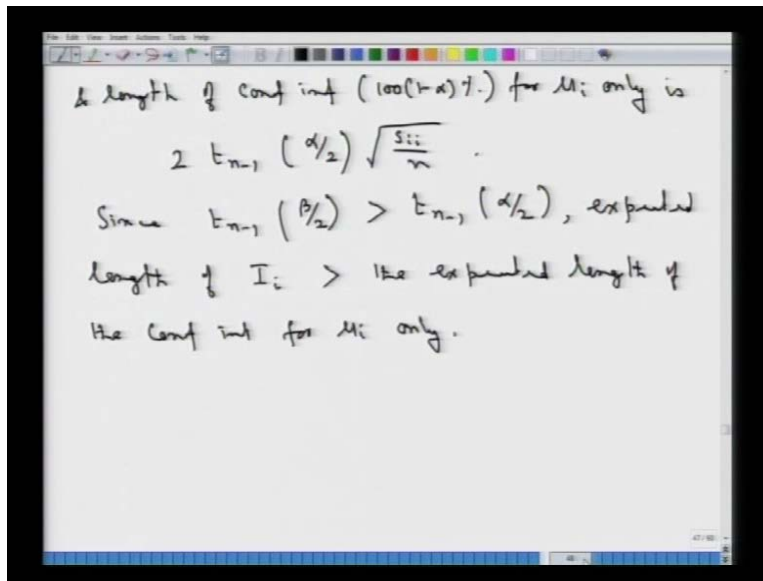 File Edit View Insert Actions Tools Help
& length of conf int (100(1-α)%) for μi only is
2 t_{n-1} (α/2) √(s_{ii}/n) .
Since t_{n-1} (β/2) > t_{n-1} (α/2), expected
length of I_i > the expected length of
the conf int for μi only.
47/50